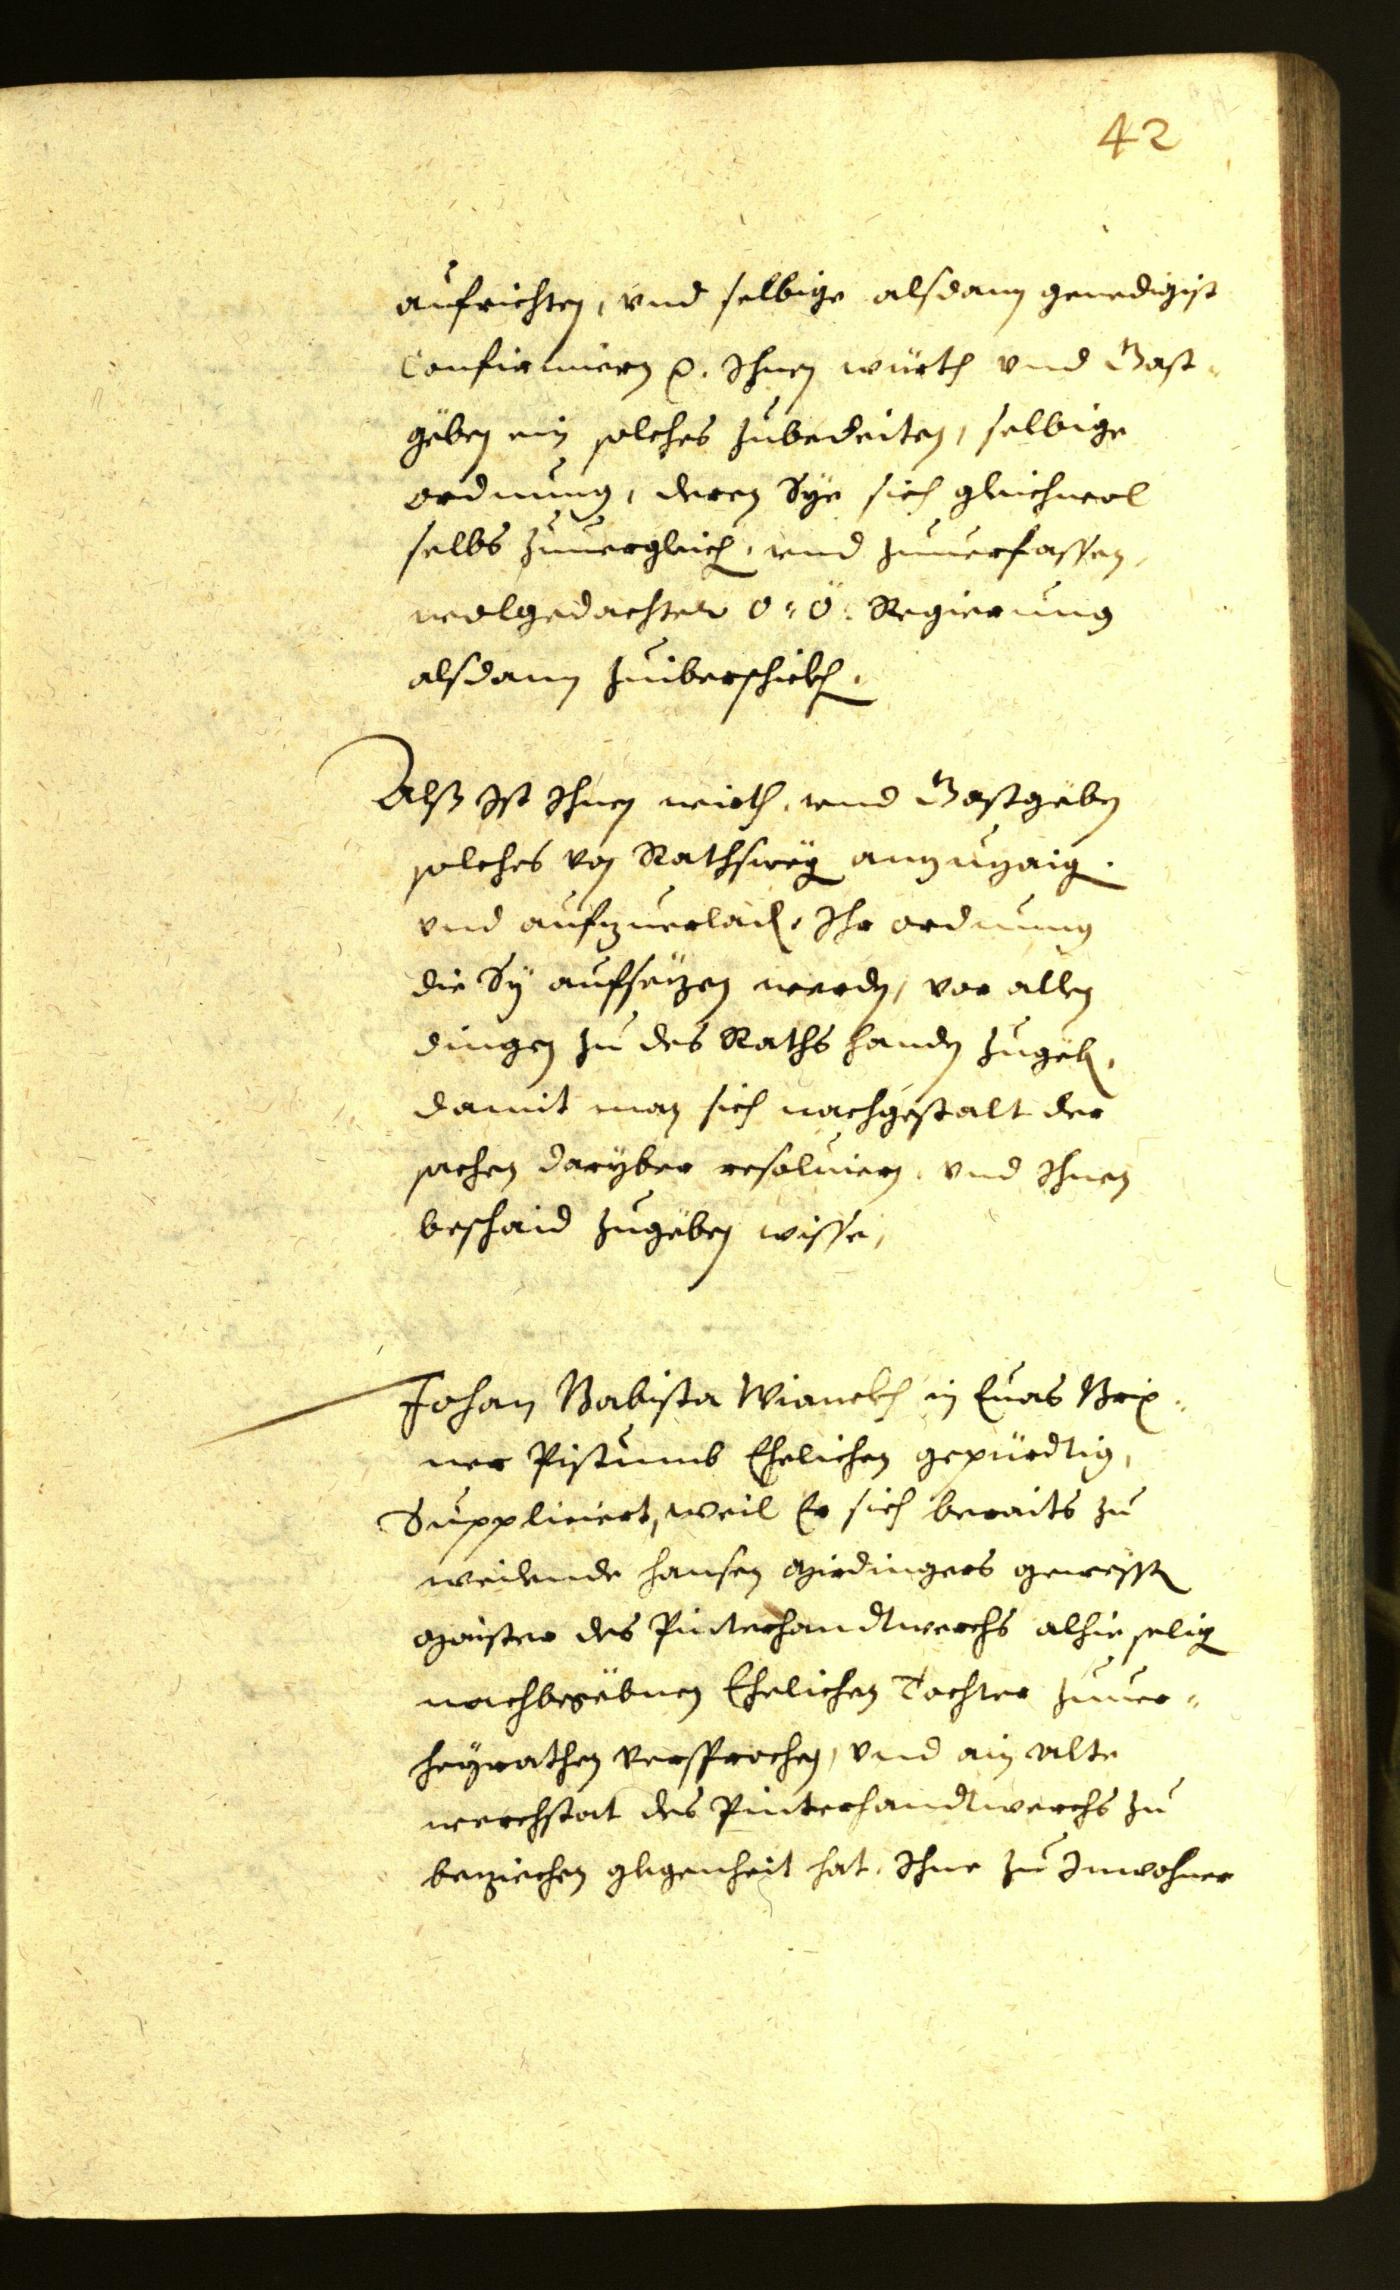 42
aufrichten, vnd selbige alsdann genedigist
Confirmiern etc. Ihnen würth vnd Gast-
geben ein solches zubedeiten, selbige
ordnung, deren Sye sich gleichwol
selbs zuuergleich. vnd zuuerfassen,
wolgedachter O: Ö: Regierung
alsdann zuiberschickh.
Alß Ist Ihnen wirth. vnd Gastgeben
solches von Rathsweg anzuzaig.
vnd aufzuerlad. Ihr ordnung
die Sy aufsezen werden, vor allen
dingen zu des Raths handen zugeb.
damit man sich nachgestalt der
sachen daryber resoluiern, vnd Ihnen
beschaid zugeben wisse,
Johan Babista in Euas Brix-
ner Pistumb Ehelichen gepürdtig,
Suppliciert, weil Er sich beraits zu
weilende hansen gewesst
maister des Pinterhandtwerchs alhie selig
nachbegebnen Ehelichen Tochter zuuer-
heyrathen versprochen, vnd ain alte
werchstat des Pinterhandtwerchs zu
beziechen glegenheit hat. Ihne zu Inwohner